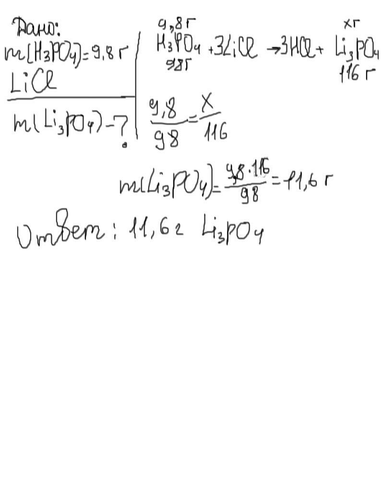 Дано:
m(H₃PO₄)=9,8 г
LiCl
m(Li₃PO₄)-?
9,8г xг
H₃PO₄+3LiCl→3HCl+Li₃PO₄
98г 116г
9,8/98=x/116
m(Li₃PO₄)=9,8·116/98=11,6 г
Ответ: 11,6г Li₃PO₄